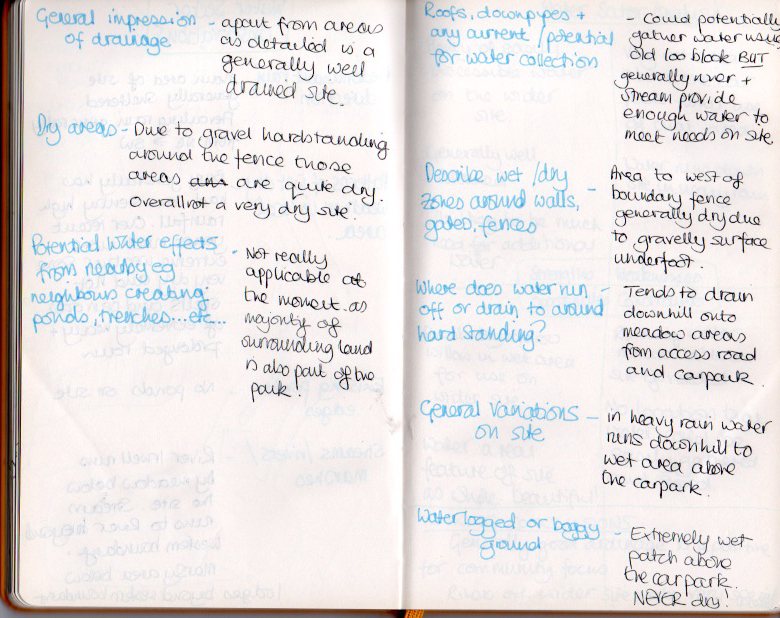 General impression - apart from areas
of drainage as detailed is a
generally well
drained site.
Dry areas - Due to gravel hardstanding
around the fence those
areas are are quite dry.
Overall not a very dry site.
Potential water effects - Not really
from nearby eg applicable at
neighbours creating the moment as
ponds, trenches...etc... majority of
surrounding land
is also part of the
park!
Roofs, downpipes + - could potentially
any current / potential gather water
for water collection old loo block BUT
generally river +
stream provide
enough water to
meet needs on site
Describe wet / dry Area to west of
zones around walls, - boundary fence
gates, fences generally dry due
to gravelly surface
underfoot.
Where does water run - Tends to drain
off or drain to around downhill onto
hard standing? meadow areas
from access road
and carpark.
General Variations - in heavy rain water
on site runs downhill to
wet area above
the carpark.
Waterlogged or boggy - Extremely wet
ground patch above
the carpark!
NEVER dry!